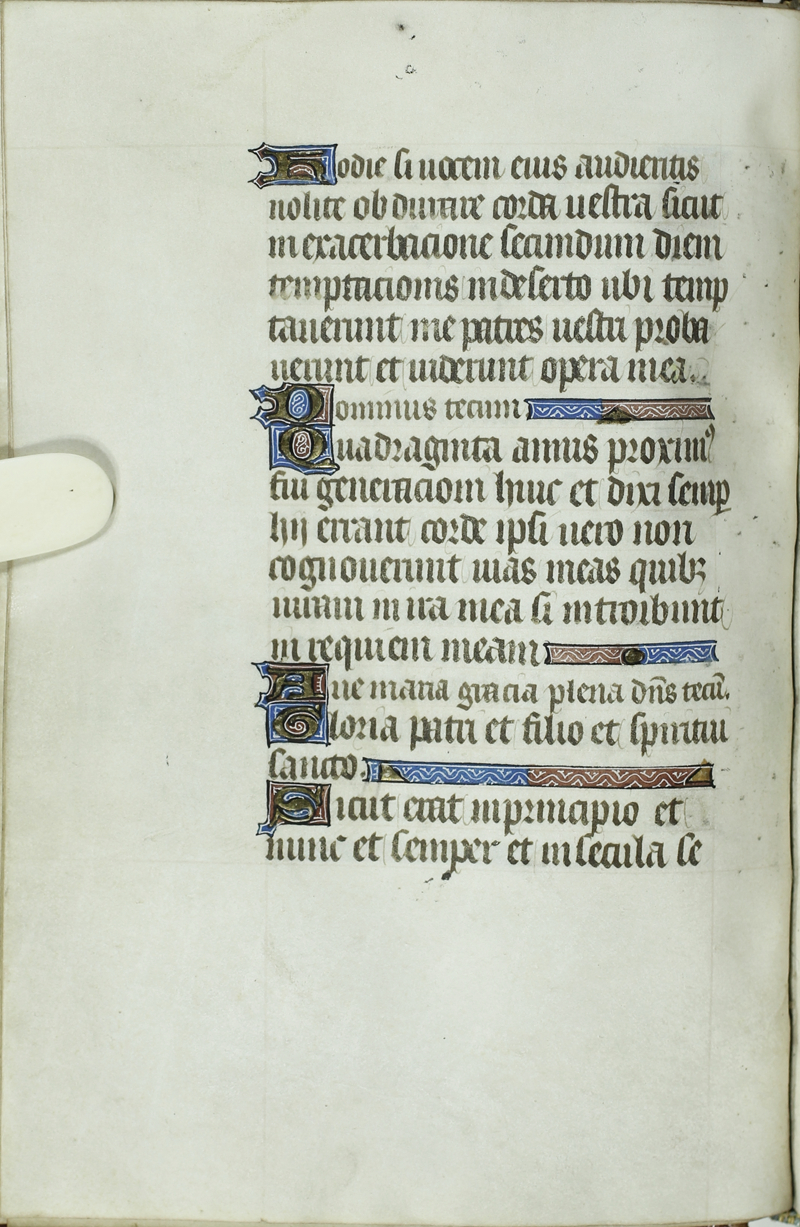 Hodie si uocem eius audieritis
nolite obdurare corda uestra sicut
in exacerbacione secundum diem
temptacionis in deserto ubi temp
tauerunt me patres uestri proba
uerunt et uiderunt opera mea.
Dominus tecum
Quadraginta annis proximꝰ
fui generacioni huic et dixi semꝑ
hij errant corde ipsi uero non
cognouerunt uias meas quibꝫ
iuraui in ira mea si introibunt
in requiem meam
Aue maria gracia plena dn̄s tecū.
Gloria patri et filio et spiritui
sancto.
Sicut erat in principio et
nunc et semper et in secula se